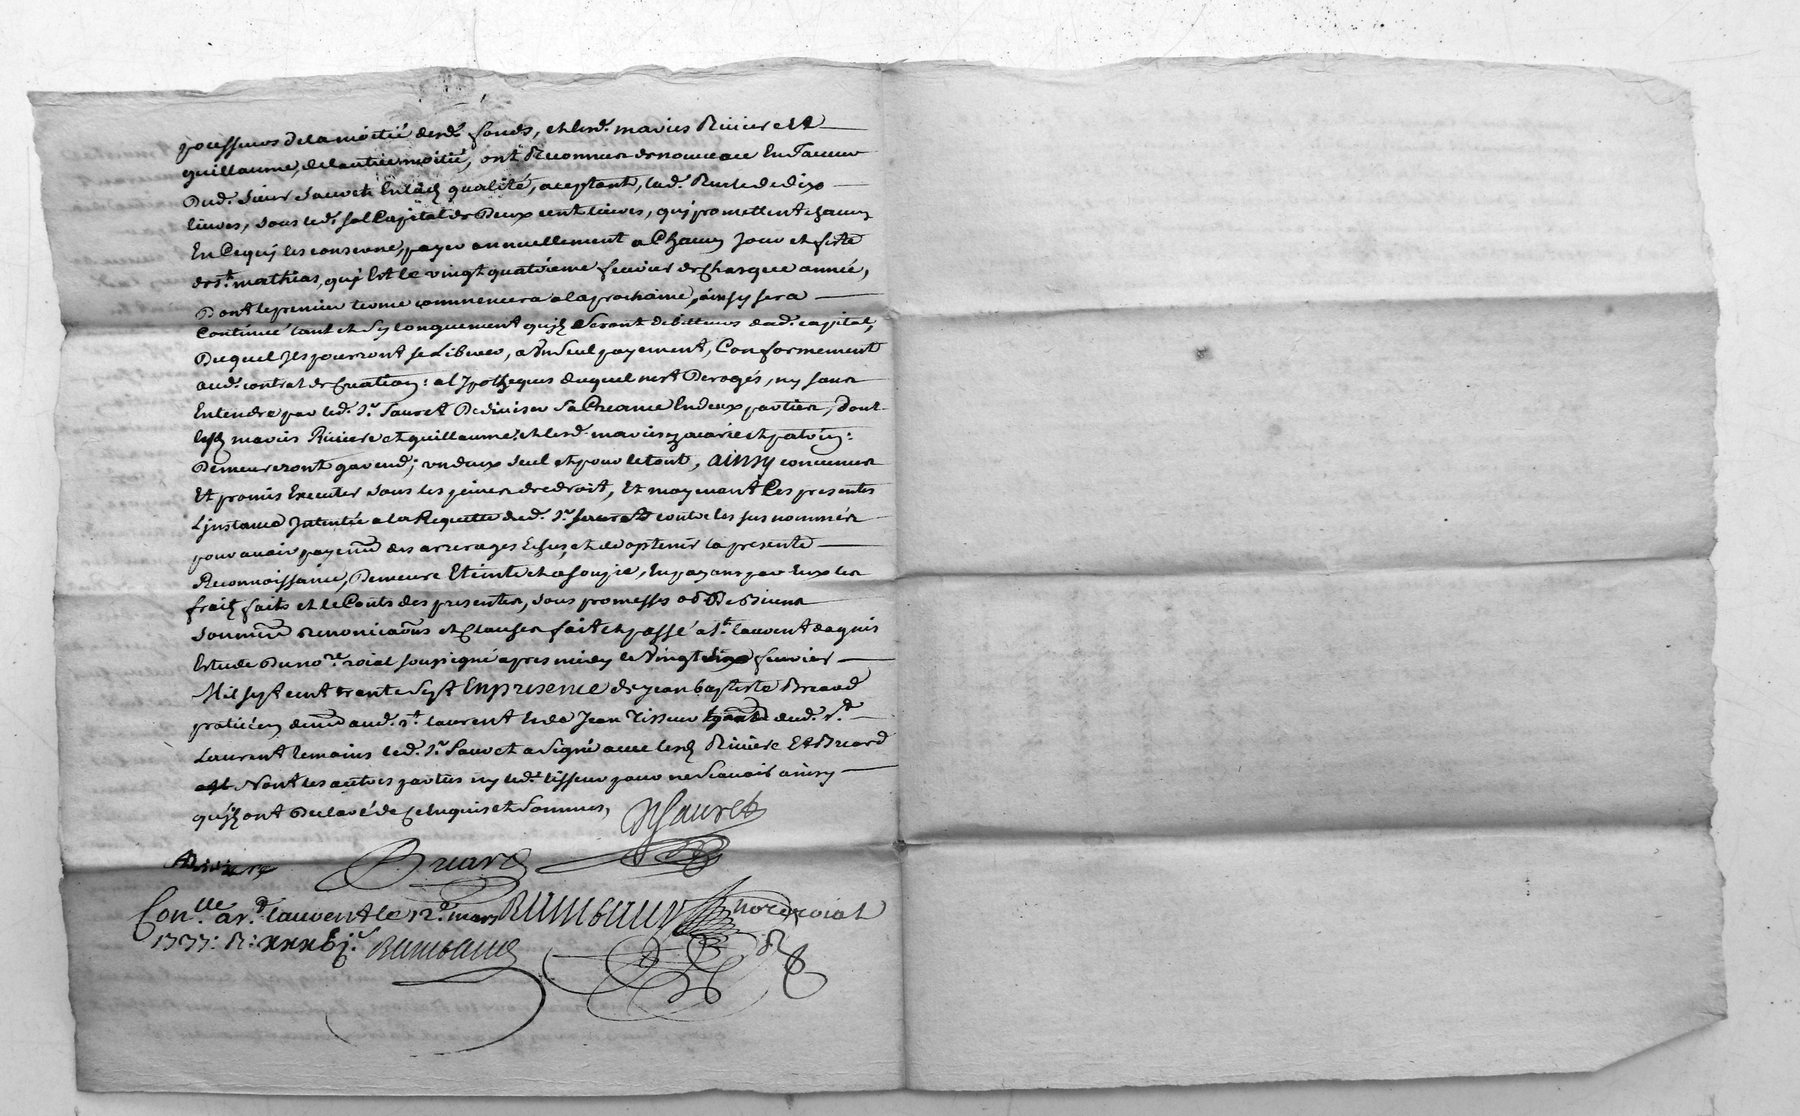 possesseurs de la moitié desd. fonds, et lesd. mariés Riviere et
guillaume, de lautre moitié, ont Reconneu de nouveau En faveur
Dud. Sieur Sauret En lad. qualité, aceptant, lad. Rente de dix
livres, sous led. sol Capital de Deux cent livres, quj promettent chacun
En Cequj les conserne, payer annuellement a Chacun Jour et feste
de st. mathias, quj Est le vingt quatrieme fevrier de Chasque année,
Dont le premier terme commencera a la prochaine, ainsy sera
Continué tant et sy longuement qujls seront debitteurs dud. capital,
Duquel Jls pourront se Liberer, a Un seul payement, Conformement
aud. contrat de Creation: al Jpotheques duquel nest Derogés, ny sans
Entendre par led. Sr. Sauret De diviser sa Creance En deux parties, dont
lesd. mariés Riviere et guillaume, et lesd. mariés et
Demeureront garend; un deux seul et pour le tout, ainsy conveneu
Et promis Executer sous les peines de droit, Et moyenant les presentes
Ljnstance Jntentée a la Requette dud. Sr. Sauret contre les sus nommés
pour avoir payemt. des arrerages Echus, et de optenir la presente
Reconnoissance, Demeure Eteinte et asoupie, En payant par Eux les
frais faits et le Couts des presentes, sous promesses obb. De Biens
soumons. Renonciaons. et Clauses fait et passé a St. laurent dagnis
Estude Du nore. roial soussigné apres midy le Vingt six fevrier
Mil sept cent trente sept En presence de jean baptiste Bruard
praticien demt. aud. st. laurent Et de Jean Tisseur dud. St.
Laurent temoins led. Sr. Sauret a signé avec lesd. Riviere Et Bruard
Non les autres parties ny led. tisseur pour ne Scavoir ainsy
qujls ont Declaré de Ce Enquis et Sommes,
Sauret
Riviere Bruard
Conlle. a st. laurent le 12e. mars Rimbaud nore. roial
1737: R:
Rimbaud